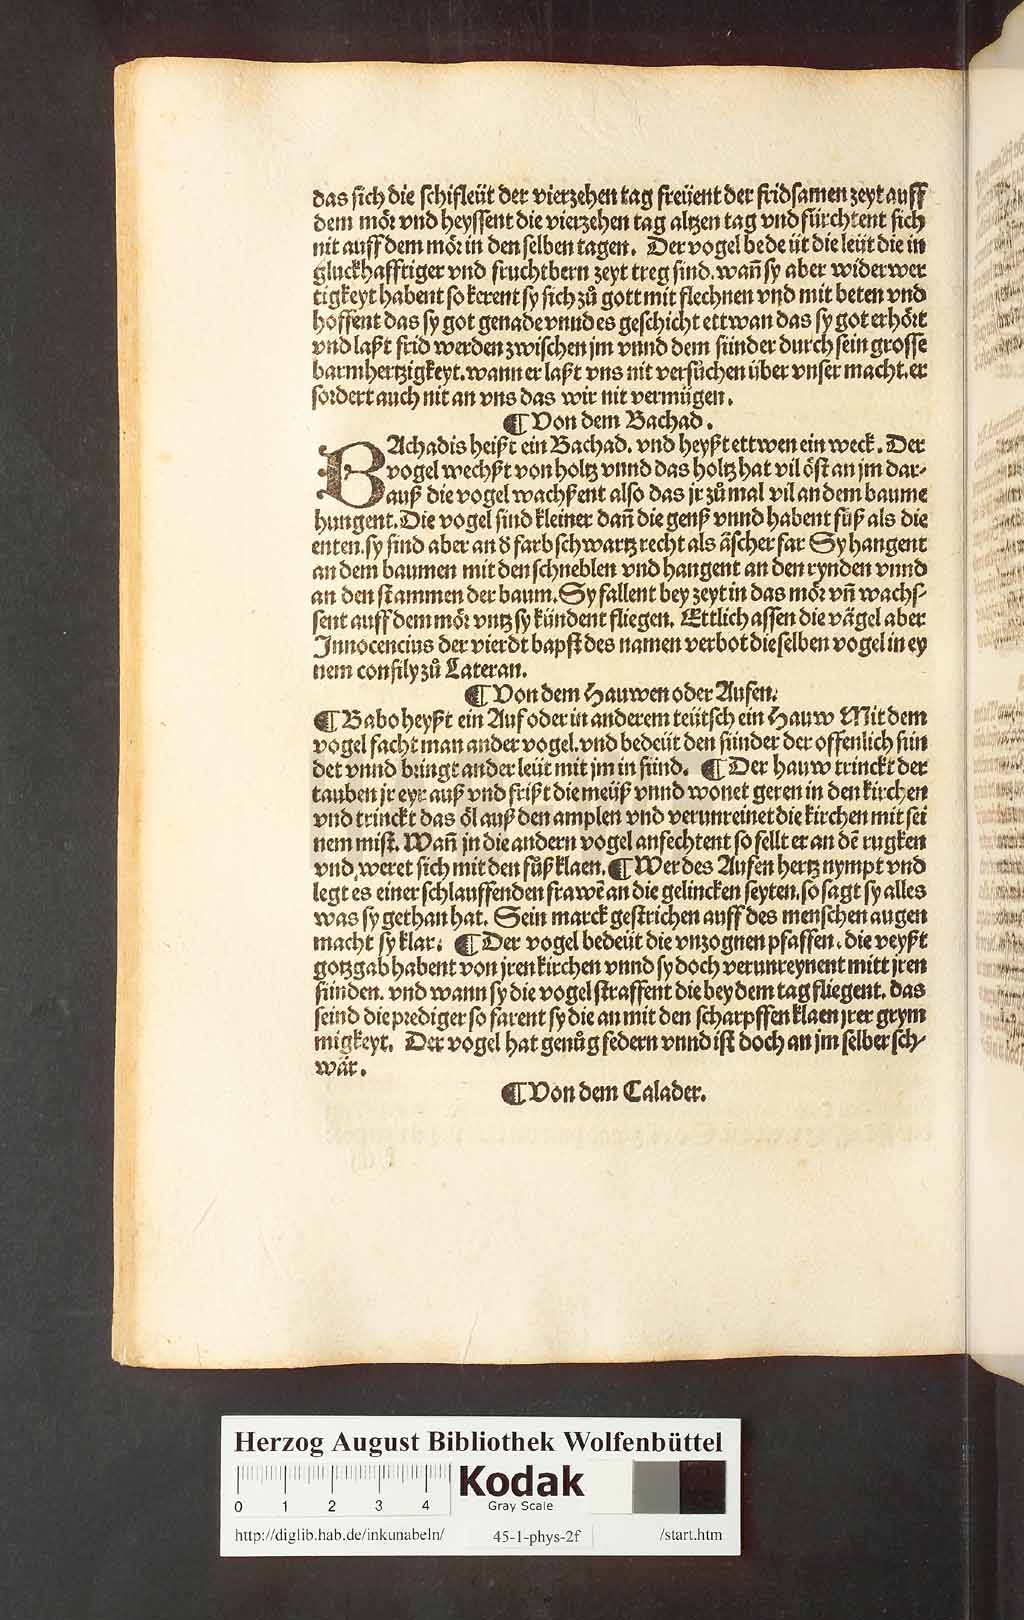 das sich die schifleüt der vierzehen tag freüent der fridsamen zeyt auff
dem mör vnd heyssent die vierzehen tag altzen tag vnd fürchtent sich
nit auff dem mör in den selben tagen. Der vogel bede üt die leüt die in
gluckhafftiger vnd fruchtbern zeyt treg sind. wañ sy aber widerwer
tigkeyt habent so kerent sy sich zů gott mit flechnen vnd mit beten vnd
hoffent das sy got genade vnnd es geschicht ettwan das sy got erhört
vnd laßt frid werden zwischen jm vnnd dem sünder durch sein grosse
barmhertzigkeyt. wann er laßt vns nit versůchen über vnser macht. er
fordert auch nit an vns das wir nit vermügen.
¶ Von dem Bachad.
BAchadis heißt ein Bachad. vnd heyßt ettwen ein weck. Der
vogel wechßt von holtz vnnd das holtz hat vil öst an jm dar-
auß die vogel wachßent also das jr zů mal vil an dem baume
hungent. Die vogel sind kleiner dañ die genß vnnd habent füß als die
enten. sy sind aber an d̕ farb schwartz recht als äscher far Sy hangent
an dem baumen mit den schneblen vnd hangent an den rynden vnnd
an den stammen der baum. Sy fallent bey zeyt in das mör vñ wachs-
sent auff dem mör vntz sy kündent fliegen. Ettlich assen die vägel aber
Innocencius der vierdt bapst des namen verbot dieselben vogel in ey
nem consily zů Lateran.
¶ Von dem Hauwen oder Aufen.
¶ Babo heyßt ein Auf oder in anderem teütsch ein Hauw Mit dem
vogel facht man ander vogel. vnd bedeüt den sünder der offenlich sün
det vnnd bringt ander leüt mit jm in sünd. ¶ Der hauw trinckt der
tauben jr eyr auß vnd frißt die meüß vnnd wonet geren in den kirchen
vnd trinckt das öl auß den amplen vnd verunreinet die kirchen mit sei
nem mist. Wañ jn die andern vogel anfechtent so fellt er an dē rugken
vnd weret sich mit den fůß klaen. ¶ Wer des Aufen hertz nympt vnd
legt es einer schlauffenden frawē an die gelincken seyten. so sagt sy alles
was sy gethan hat. Sein marck gestrichen auff des menschen augen
macht sy klar. ¶ Der vogel bedeüt die vnzognen pfaffen. die veyßt
gotzgab habent von jren kirchen vnnd sy doch verunreynent mitt jren
sünden. vnd wann sy die vogel straffent die bey dem tag fliegent. das
seind die prediger so farent sy die an mit den scharpffen klaen jrer grym
migkeyt. Der vogel hat genůg federn vnnd ist doch an jm selber sch-
wär.
¶ Von dem Calader.
Herzog August Bibliothek Wolfenbüttel
0 1 2 3 4
Kodak
Gray Scale
http://diglib.hab.de/inkunabeln/ 45-1-phys-2f /start.htm